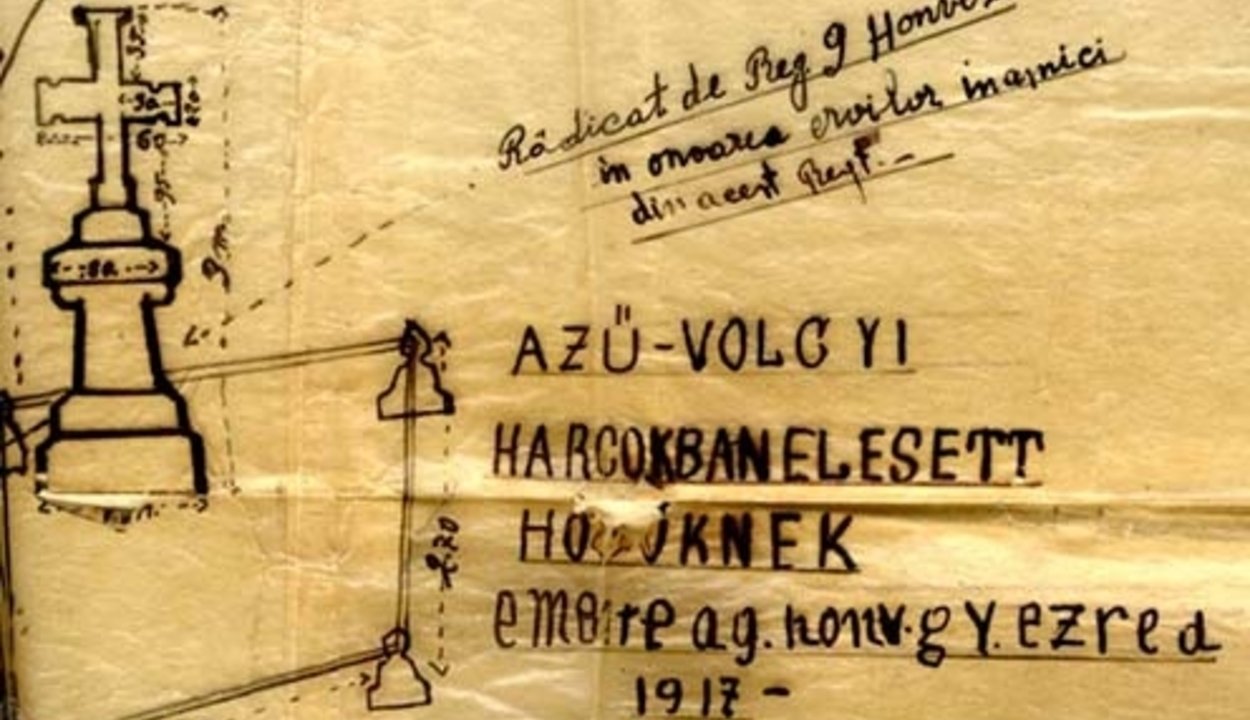 Rădicat de Reg 9 Honvez
in onoarea eroilor inamici
din acest Regt. -
AZÜ-VOLGYI
HARCOKBAN ELESETT
emŏire a g. honv. gy. ezred
1917 -
35
30
20
60
95
80
3 m
2.20